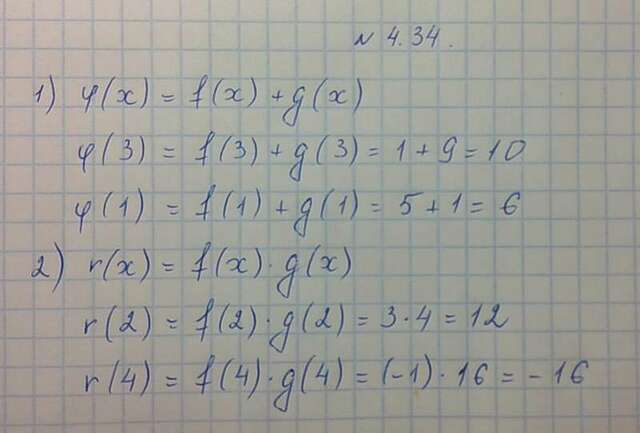 N 4.34.
1) φ(x) = f(x) + g(x)
φ(3) = f(3) + g(3) = 1 + 9 = 10
φ(1) = f(1) + g(1) = 5 + 1 = 6
2) r(x) = f(x) · g(x)
r(2) = f(2) · g(2) = 3 · 4 = 12
r(4) = f(4) · g(4) = (-1) · 16 = - 16